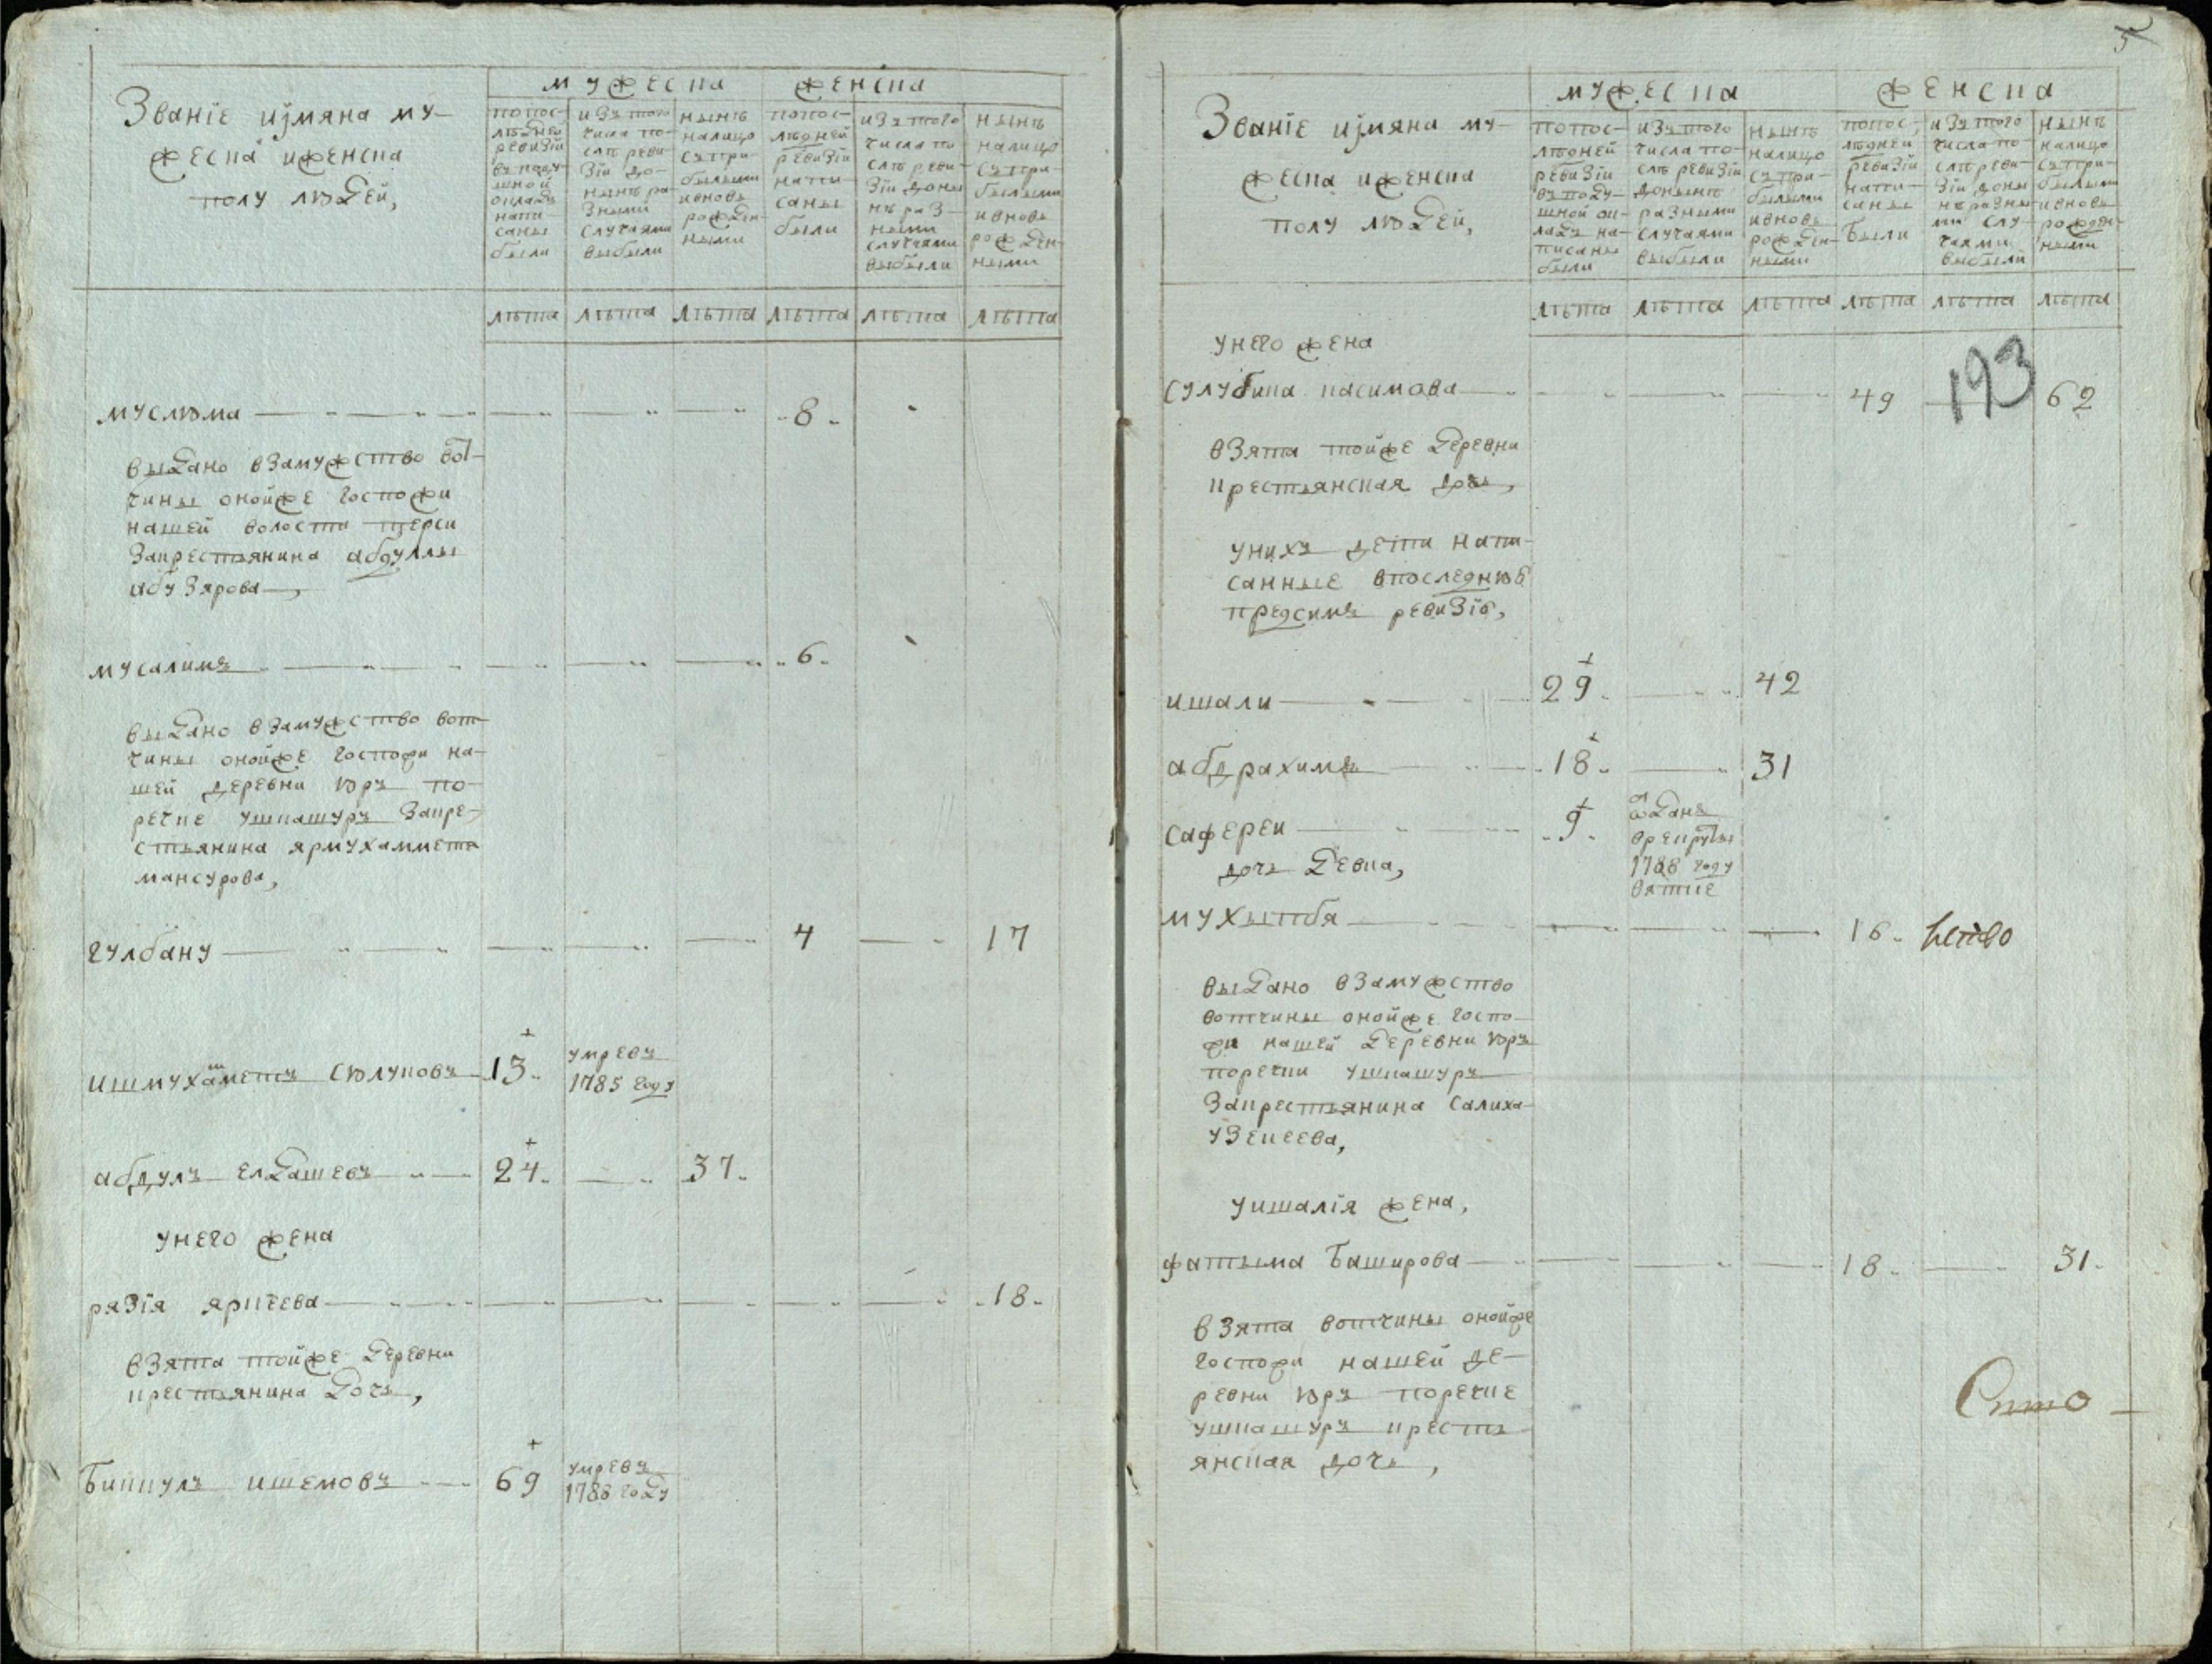 Званіе иімяна му-
жеска иженска
полу людей,
мужеска
женска
попос-
лѣдней
ревизіи
въ поду-
шной
окладъ
напи-
саны
были
изъ того
числа по-
слѣ реви-
зіи до-
нынѣ ра-
зными
случаями
выбыли
нынѣ
налицо
съ при-
былыми
ивновь
рожден-
ными
попос-
лѣдней
ревизіи
напи-
саны
были
изъ того
числа по
слѣ реви-
зіи доны
нѣ раз-
ными
случаями
выбыли
нынѣ
налицо
съ при-
былыми
ивновь
рожден-
ными
лѣта лѣта лѣта лѣта лѣта лѣта
муслюма 8
выдано взамужство вот-
чины онойже госпожи
нашей волости терси
закрестьянина абдуллы
абузярова,
мусалимя 6
выдано взамужство вот-
чины онойже госпожи на-
шей деревни юръ по-
речке ушкашуръ закре-
стьянина ярмухаммета
мансурова,
гулбану 4 17
ишмухаметъ сюлуковъ 13 умре въ
1785 году
абдулъ елдашевъ 24 37
унего жена
рязія яркеева 18
взята тойже деревни
крестьянина дочь,
Биккулъ ишемовъ 69 умре въ
1788 году
5
Званіе иімяна му-
жеска иженска
полу людей,
мужеска
женска
попос-
лѣдней
ревизіи
въ поду-
шной ок-
ладъ на-
писаны
были
изъ того
числа по-
слѣ ревизіи
донынѣ
разными
случаями
выбыли
нынѣ
налицо
съ при-
былыми
ивновь
рожден-
ными
попос-
лѣдней
ревизіи
напи-
саны
были
изъ того
числа по-
слѣ реви-
зіи доны
нѣ разны-
ми слу-
чаями
выбыли
нынѣ
налицо
съ при-
былыми
ивновь
рожден-
ными
лѣта лѣта лѣта лѣта лѣта лѣта
унего жена
193
сулубика касимова 49 62
взята тойже деревни
крестьянская дочь,
униxъ дети напи-
санные впоследнюю
предсимъ ревизію,
ишали 29 42
абдрахимъ 18 31
сафереи 9 отданъ
врекруты
1788 году
вятке
дочь девка,
мухытбя 16
выдано взамужство
вотчины онойже госпо-
жи нашей деревни юръ
поречки ушкашуръ
закрестьянина салиха
узекеева,
уишалія жена,
фатыма Баширова 18 31
взята вотчины онойже
госпожи нашей де-
ревни юръ поречке
ушкашуръ кресть-
янская дочь,